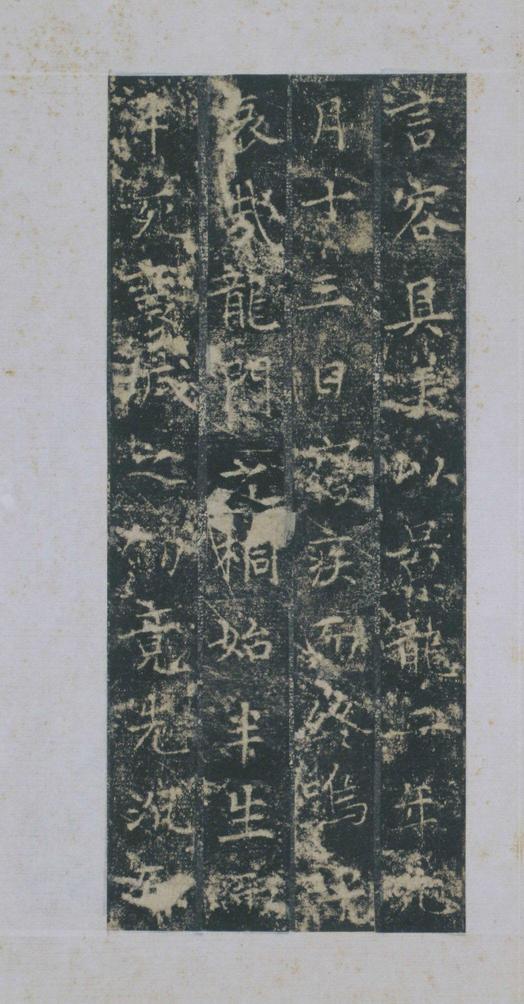 言容具美以景龍二年
月十三日寢疾而終嗚呼
哀哉龍門之桐始半生而
半死城之劍竟先沉